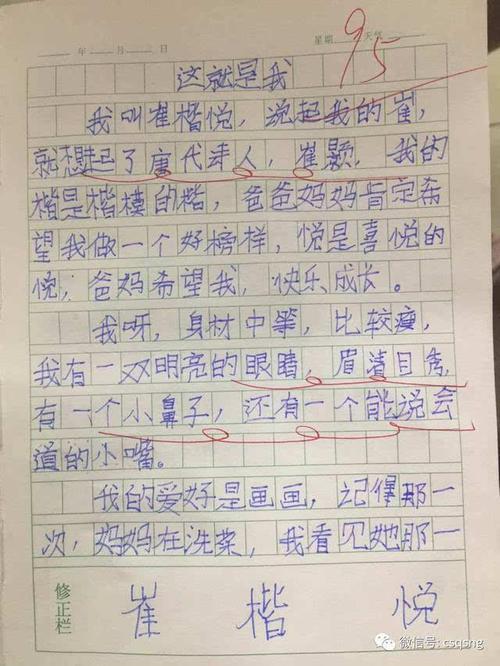 年 月 日 星期 天气
95
这就是我
我叫崔楷悦，说起我的崔，
就想起了唐代诗人，崔颢，我的
楷是楷模的楷，爸爸妈妈肯定希
望我做一个好榜样，悦是喜悦的
悦，爸妈希望我，快乐成长。
我呀，身材中等，比较瘦，
我有一双明亮的眼睛，眉清目秀，
有一个小鼻子，还有一个能说会
道的小嘴。
我的爱好是画画，记得那一
次，妈妈在洗菜，我看见她那一
修正栏
崔 楷 悦
微信号: csqsng